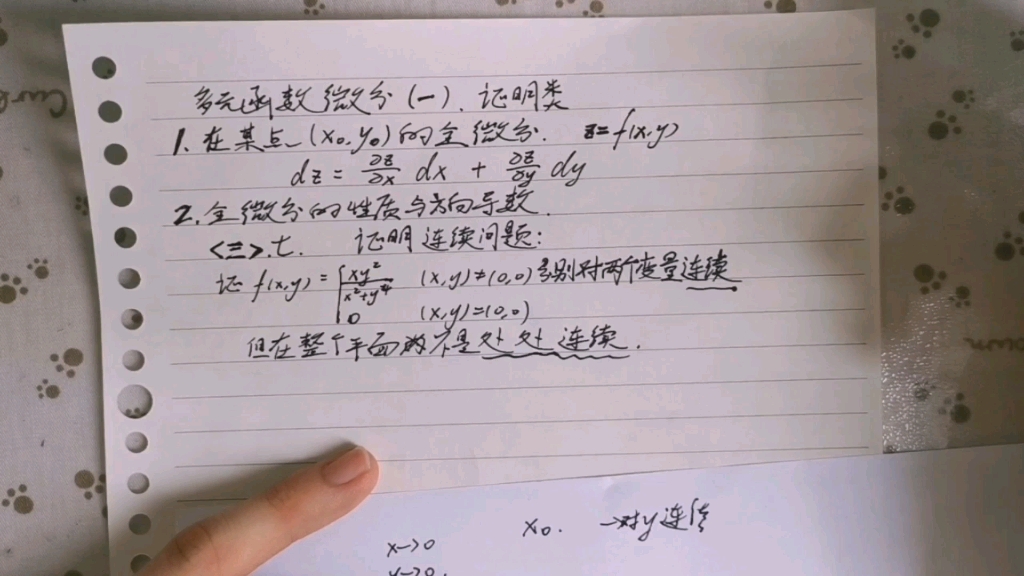 多元函数微分(一).证明类
1.在某点(x₀,y₀)的全微分. z=f(x,y)
dz = ∂z/∂x dx + ∂z/∂y dy
2.全微分的性质与方向导数.
<三>.t. 证明连续问题:
证 f(x,y) = { xy²/(x²+y⁴) (x,y)≠(0,0) 分别对两个变量连续
0 (x,y)=(0,0)
但在整个平面 不是处处连续.
x₀. →对y连续
x→0
y→0.